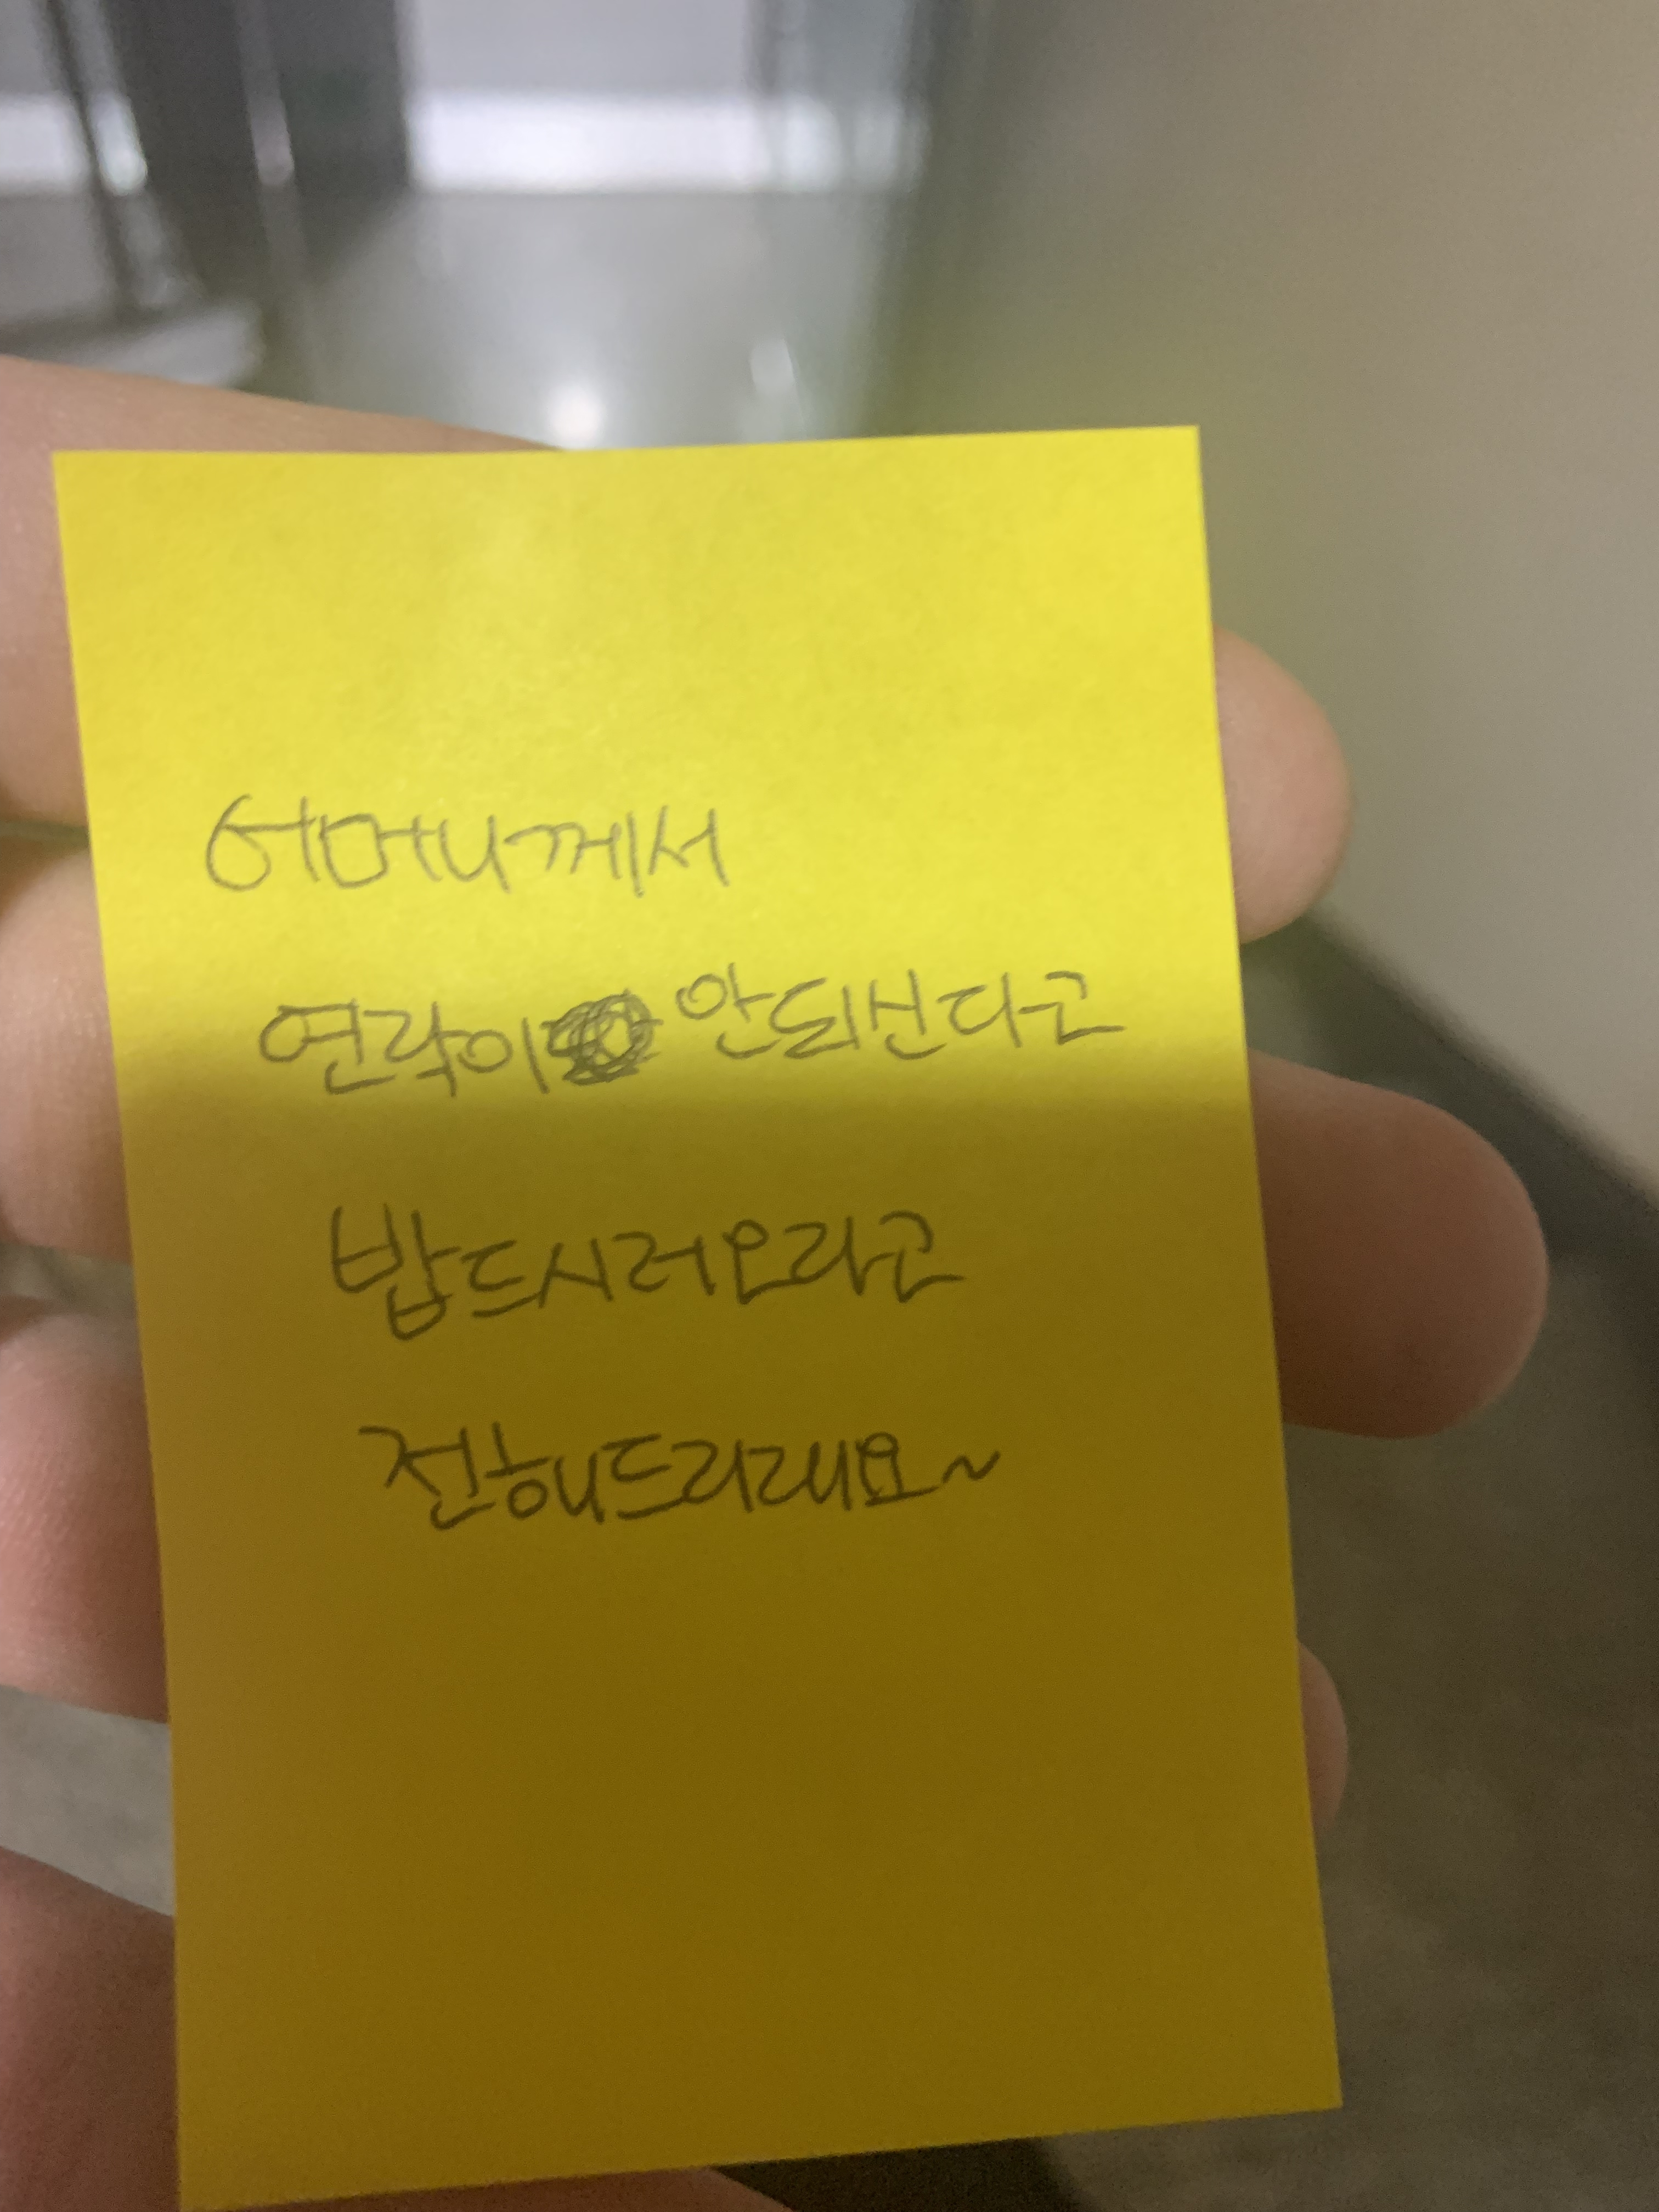 어머니께서
연락이 안되신다고
밥드시러오라고
전해드리래요~